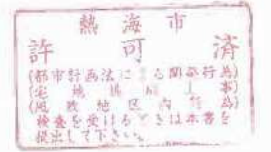 熱海市
許可済
(都市計画法による開発行為)
(宅地 )
(風致地区内行為)
検査を受けるときは本書を
提出して下さい。